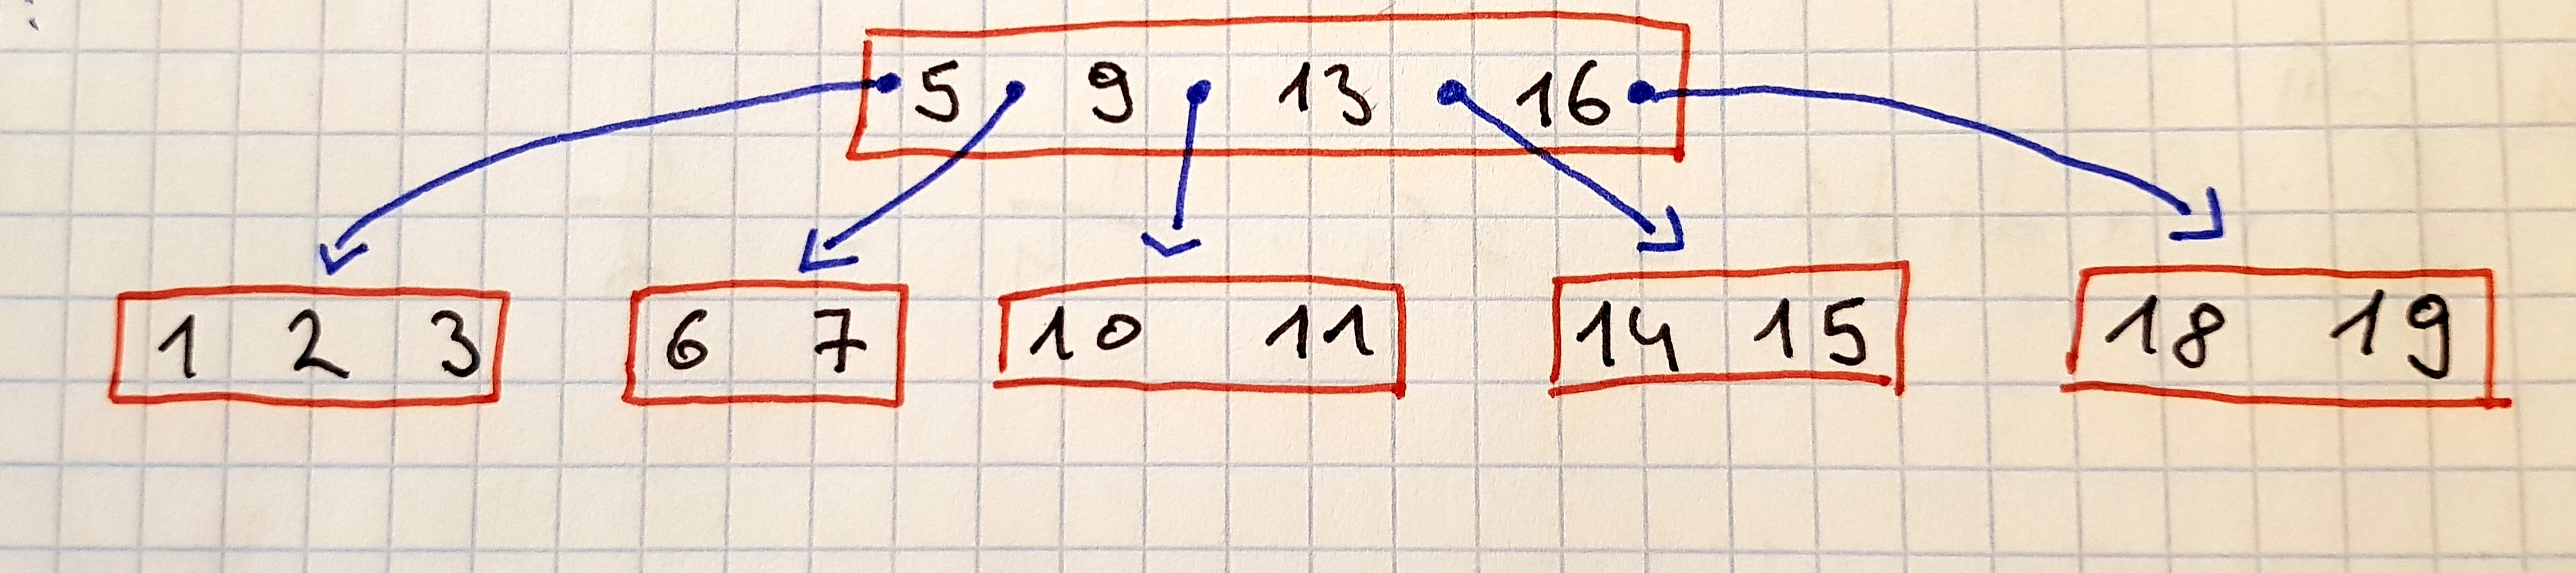 5 9 13 16
1 2 3 6 7 10 11 14 15 18 19